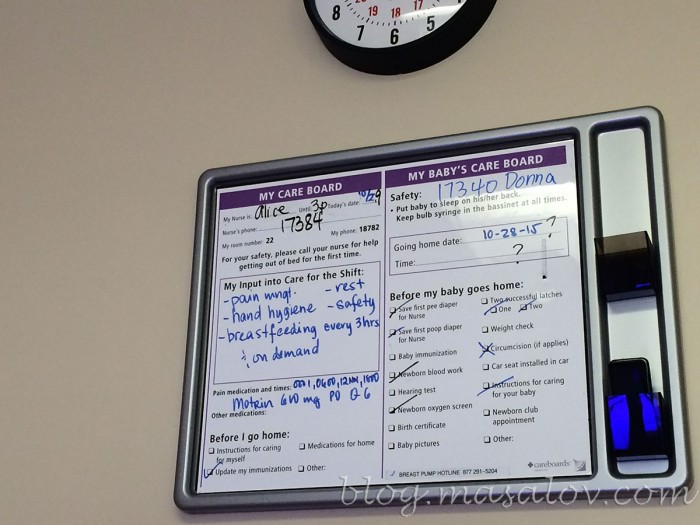 8 7 6 5
20 19 18 17
MY CARE BOARD
My Nurse is: Alice Until: 3p Today's date:
Nurse's phone: 17384
My room number: 22 My phone: 18782
For your safety, please call your nurse for help
getting out of bed for the first time.
My Input into Care for the Shift:
- pain mngt. - rest
- hand hygiene - safety
- breastfeeding every 3hrs
on demand
Pain medication and times: 0001, 0600, 12NN, 1800
Motrin 600 mg PO Q 6
Other medications:
Before I go home:
Instructions for caring
for myself
Medications for home
Update my immunizations
Other:
MY BABY'S CARE BOARD
Safety: 17340 Donna
• Put baby to sleep on his/her back.
Keep bulb syringe in the bassinet at all times.
Going home date: 10-28-15 ?
Time: ?
Before my baby goes home:
Save first pee diaper
for Nurse
Save first poop diaper
for Nurse
Baby immunization
Newborn blood work
Hearing test
Newborn oxygen screen
Birth certificate
Baby pictures
Two successful latches
One Two
Weight check
Circumcision (if applies)
Car seat installed in car
Instructions for caring
for your baby
Newborn club
appointment
Other:
BREAST PUMP HOTLINE 877 291-5204
careboards
blog.masalov.com